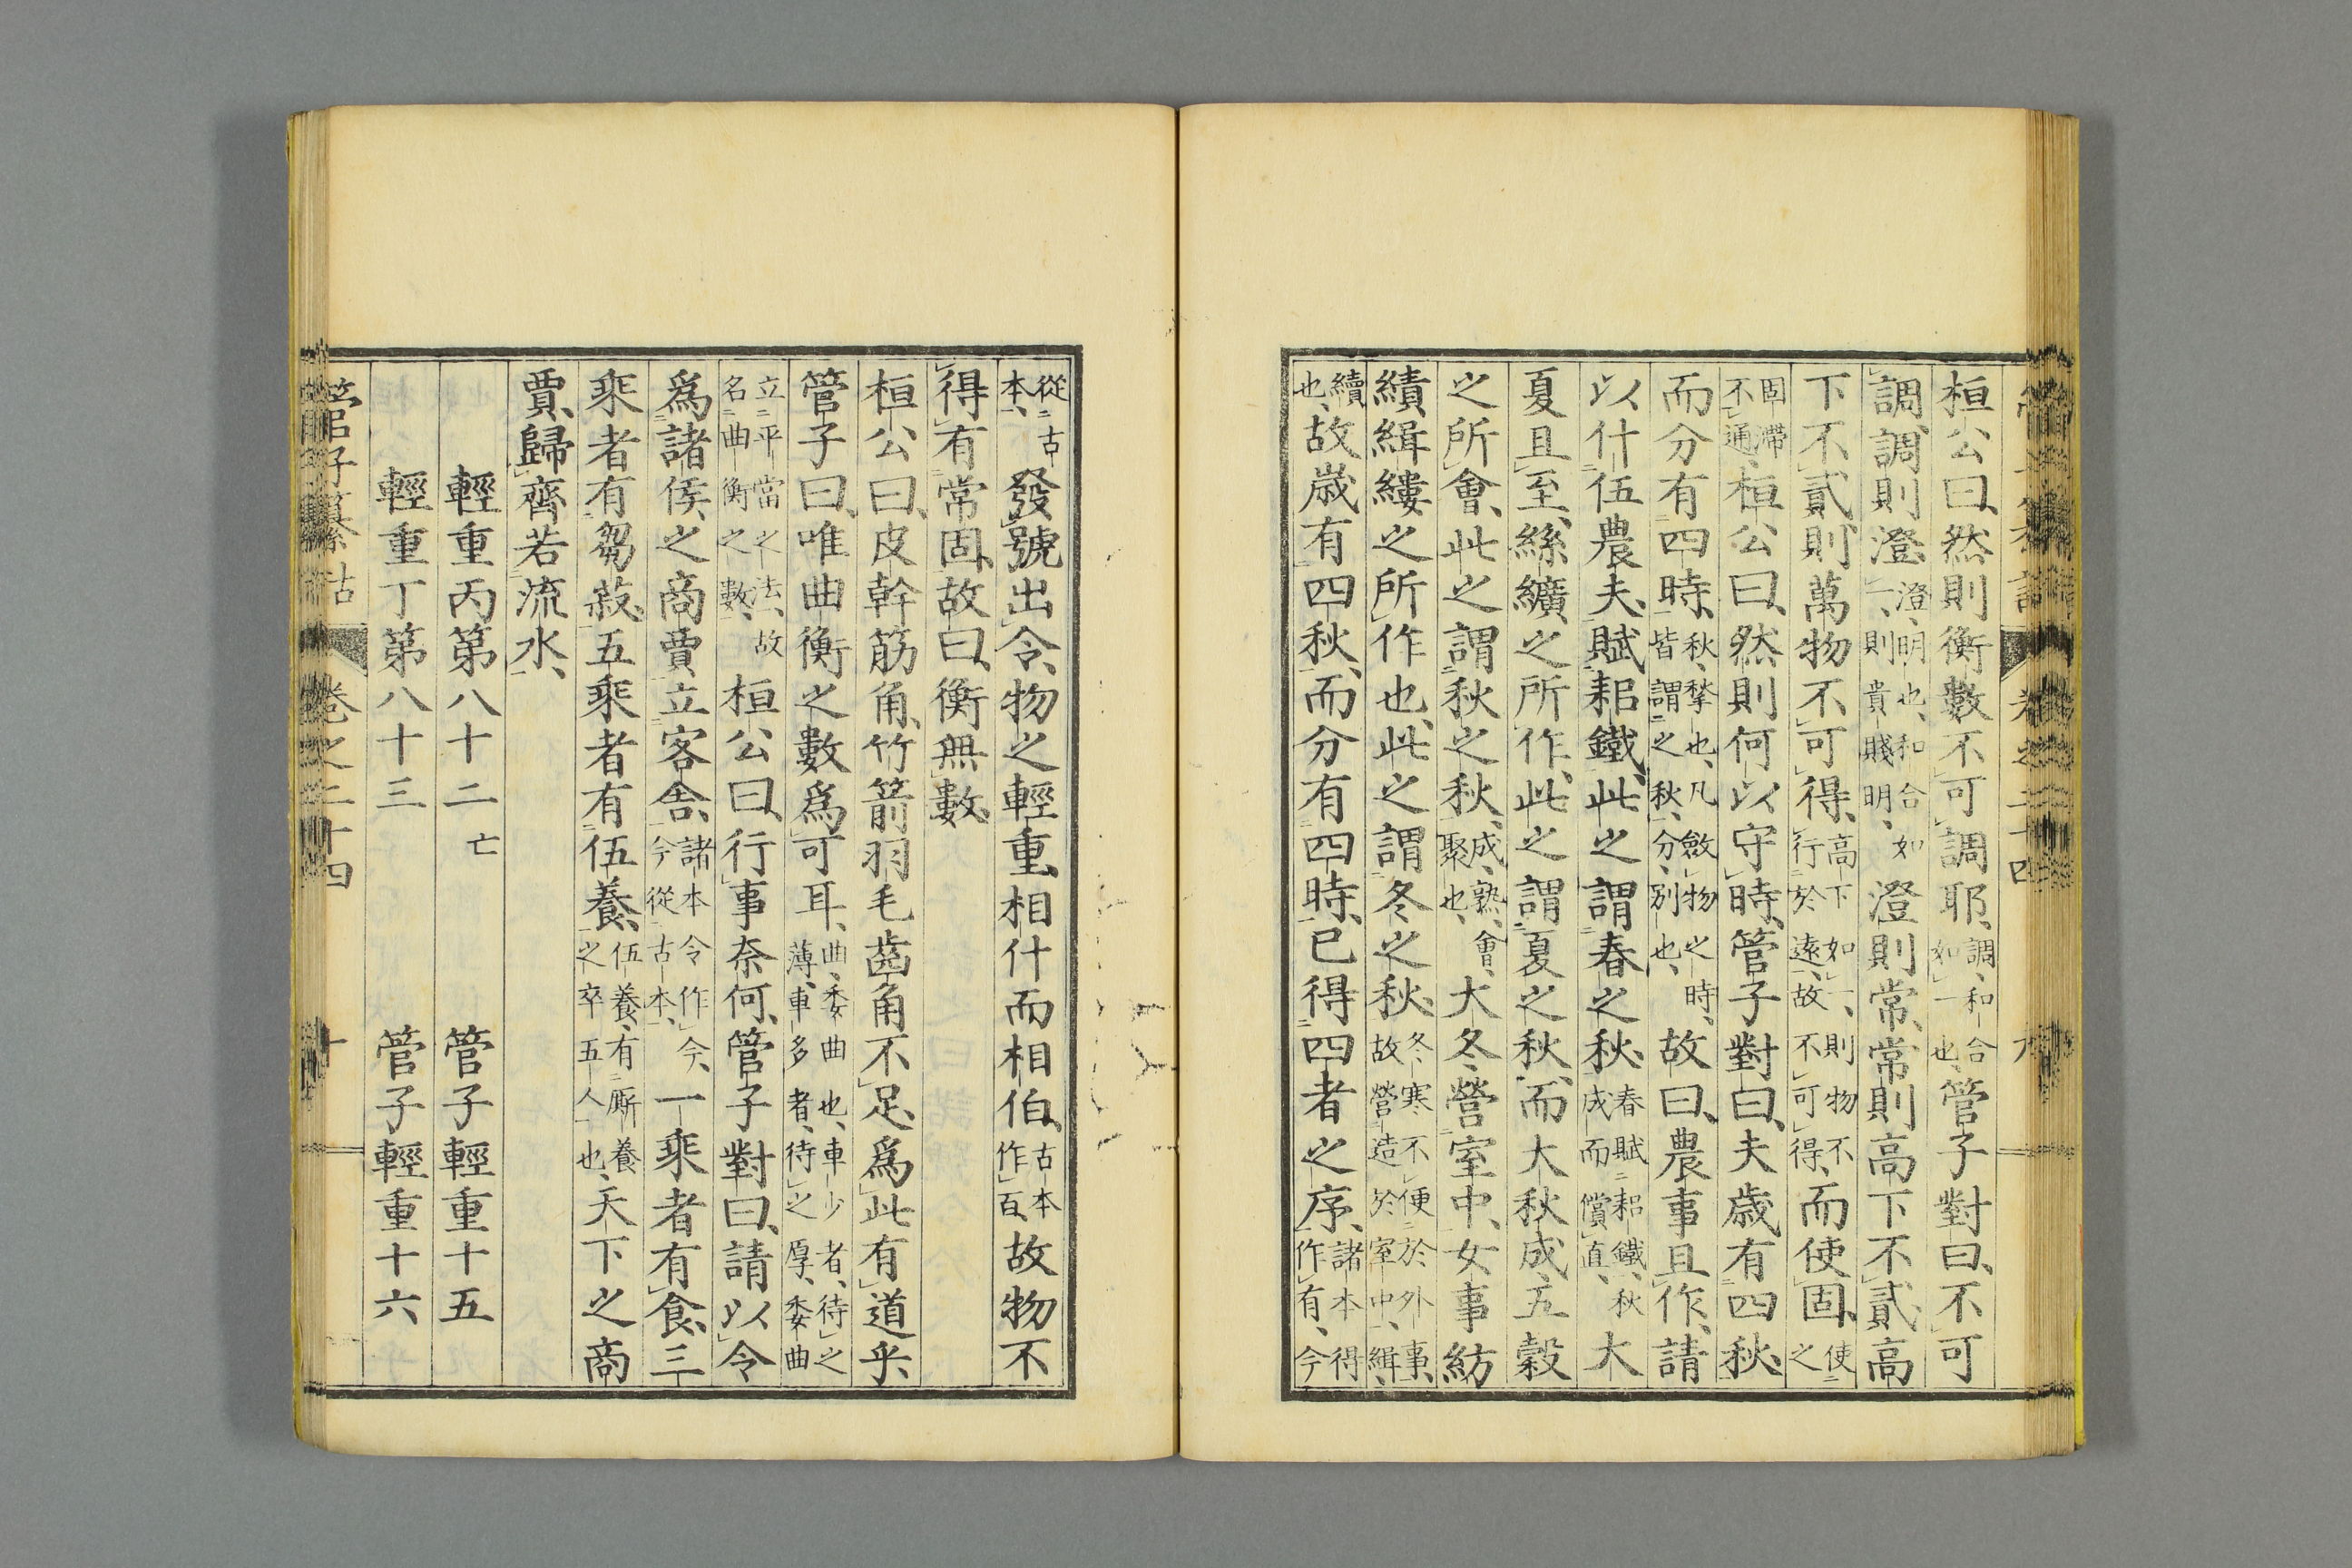 桓公曰、然則衡數不可調耶、調、和合如一也、管子對曰、不可
調、調則澄、澄、明也、和合如一、則貴賤明、澄則常、常則高下不貳、高
下不貳、則萬物不可得、高下如一、則物不行於遠、故不可得、而使固、使之
固滯不通、桓公曰、然則何以守時、管子對曰、夫歲有四秋、
而分有四時、秋、揫也、凡斂物之時、皆謂之秋、分、別也、故曰、農事且作、請
以什伍農夫、賦耜鐵、此之謂春之秋、春賦耜鐵、秋成而償直、大
夏且至、絲纊之所作、此之謂夏之秋、而大秋成、五穀
之所會、此之謂秋之秋、成、熟、會、聚也、大冬營室中、女事紡
績緝縷之所作也、此之謂冬之秋、冬寒不便於外事、故營造於室中、緝、
續也、故歲有四秋、而分有四時、已得四者之序、諸本得作有、今
從古本、發號出令、物之輕重、相什而相伯、古本作百、故物不
得有常固、故曰、衡無數、
桓公曰、皮幹筋角、竹箭羽毛齒角不足、爲此有道乎、
管子曰、唯曲衡之數爲可耳、曲、委曲也、車少者、待之薄、車多者、待之厚、委曲
立平當之法、故名曲衡之數、桓公曰、行事奈何、管子對曰、請以令
爲諸侯之商賈立客舍、諸本令作今、今從古本、一乘者有食、三
乘者有芻菽、五乘者有伍養、伍養、有廝養之卒五人也、天下之商
賈、歸齊若流水、
輕重丙第八十二 亡 管子輕重十五
輕重丁第八十三 管子輕重十六
管子纂詁 卷之二十四 十